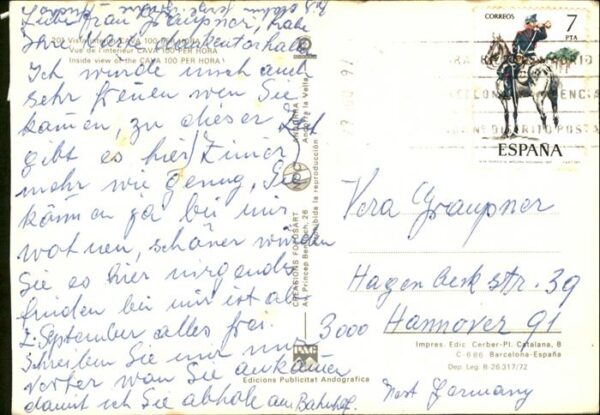 Liebe Frau Graupner, habe
Ihre Karte dankent erhalt.
Ich würde mich auch
sehr freuen wen Sie
kämen, zu dieser Zeit
gibt es hier Zimer
mehr wie genug, Sie
können ja bei mir
wohnen, schöner würden
Sie es hier nirgends
finden bei mir ist ab
2. September alles frei.
Schreiben Sie mir nur
vorher wan Sie ankämen
damit ich Sie abhole am Bahnhof.
201 Vista CAVA 100 PER HORA
Vue de l'interieur CAVA 100 PER HORA
Inside view of the CAVA 100 PER HORA
CREACIONS FOTOSART
Av. Princep Benlloch, 26
ANDORRA
Andorra la Vella
Prohibida la reproducción
Edicions Publicitat Andografica
CORREOS
7
PTA
ESPAÑA
Vera Graupner
Hagenbeckstr. 39
3000 Hannover 91
Impres. Edic Cerber-Pl. Catalana, 8
C-6.66 Barcelona-España
Dep. Leg. B-26.317/72
West Germany